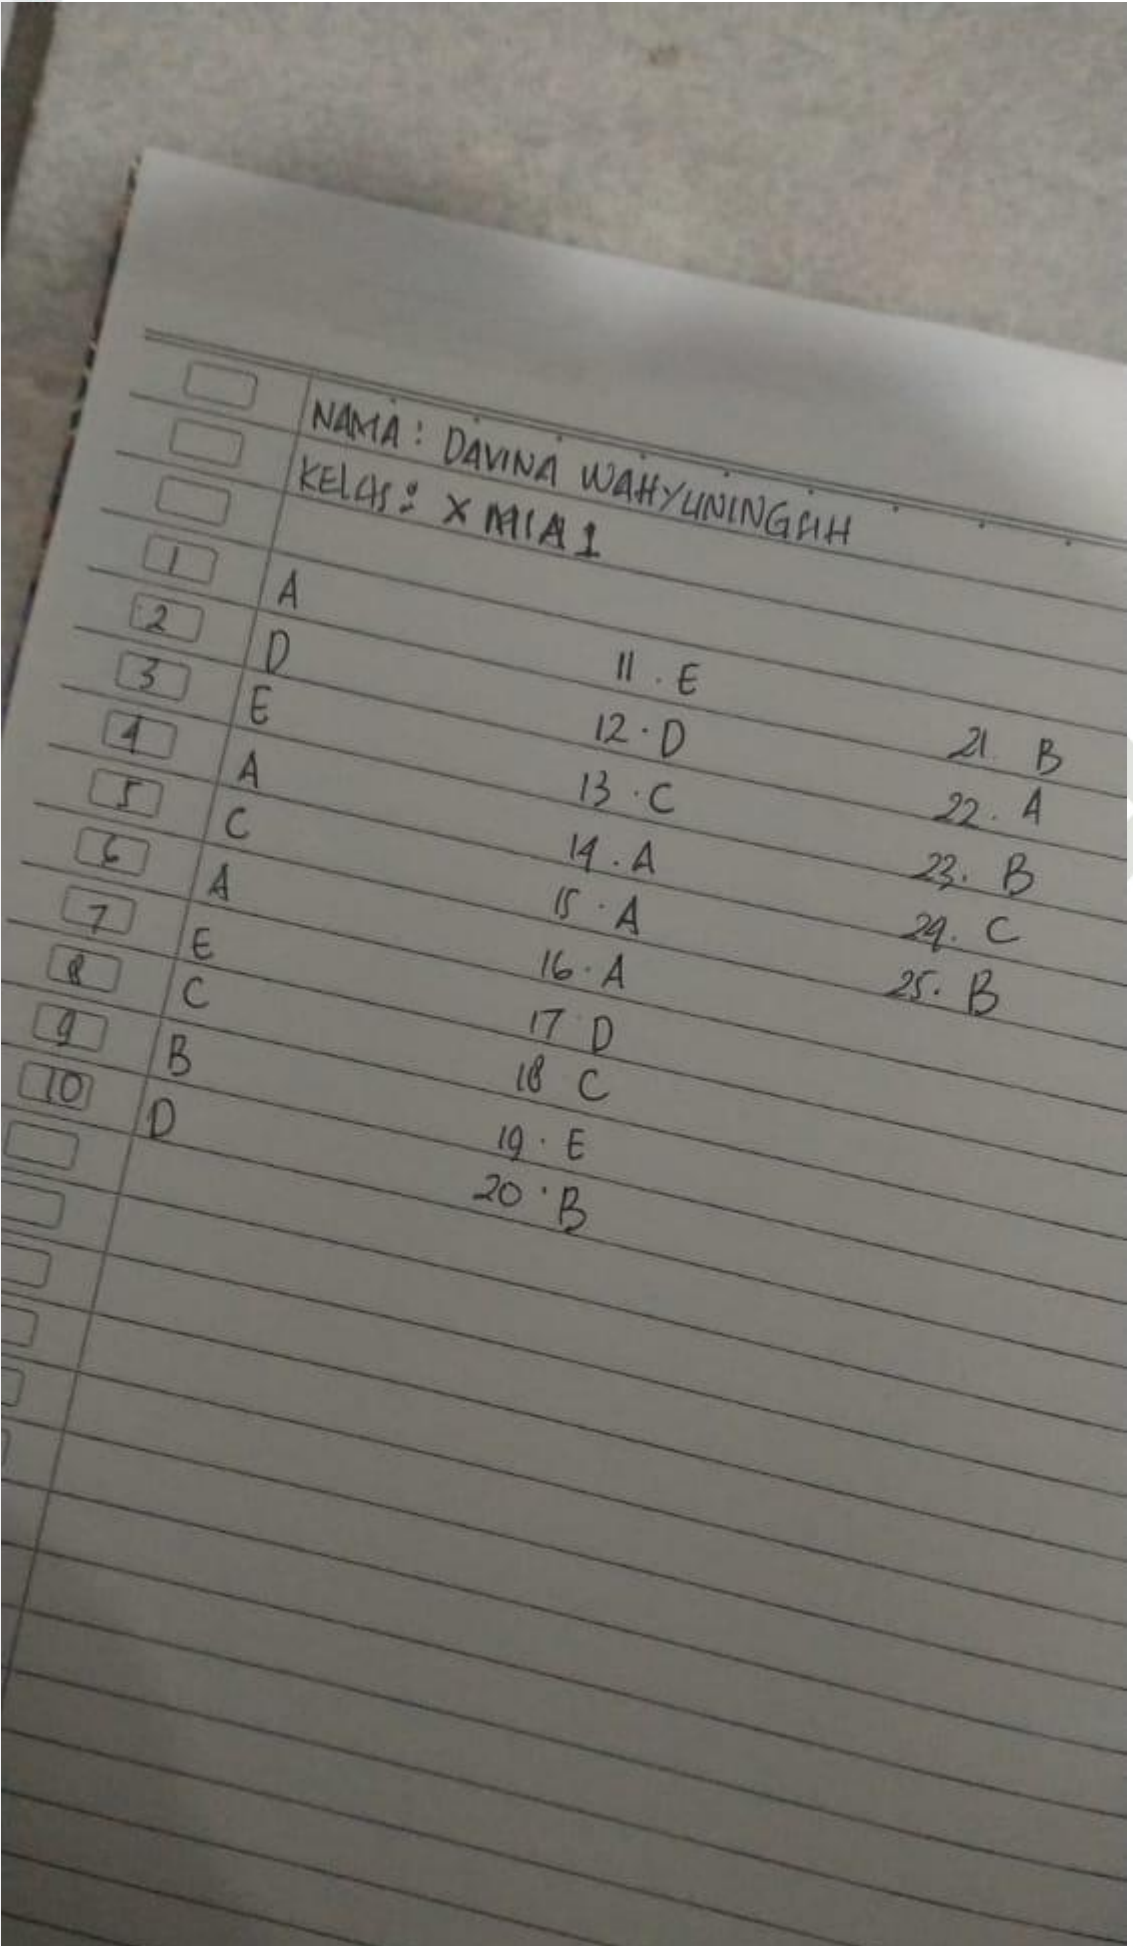 NAMA : DAVINA WAHYUNINGSIH
KELAS : X MIA 1
1 A
2 D
3 E
4 A
5 C
6 A
7 E
8 C
9 B
10 D
11 . E
12 . D
13 . C
14 . A
15 . A
16 . A
17 D
18 C
19 . E
20 . B
21. B
22. A
23. B
24. C
25. B